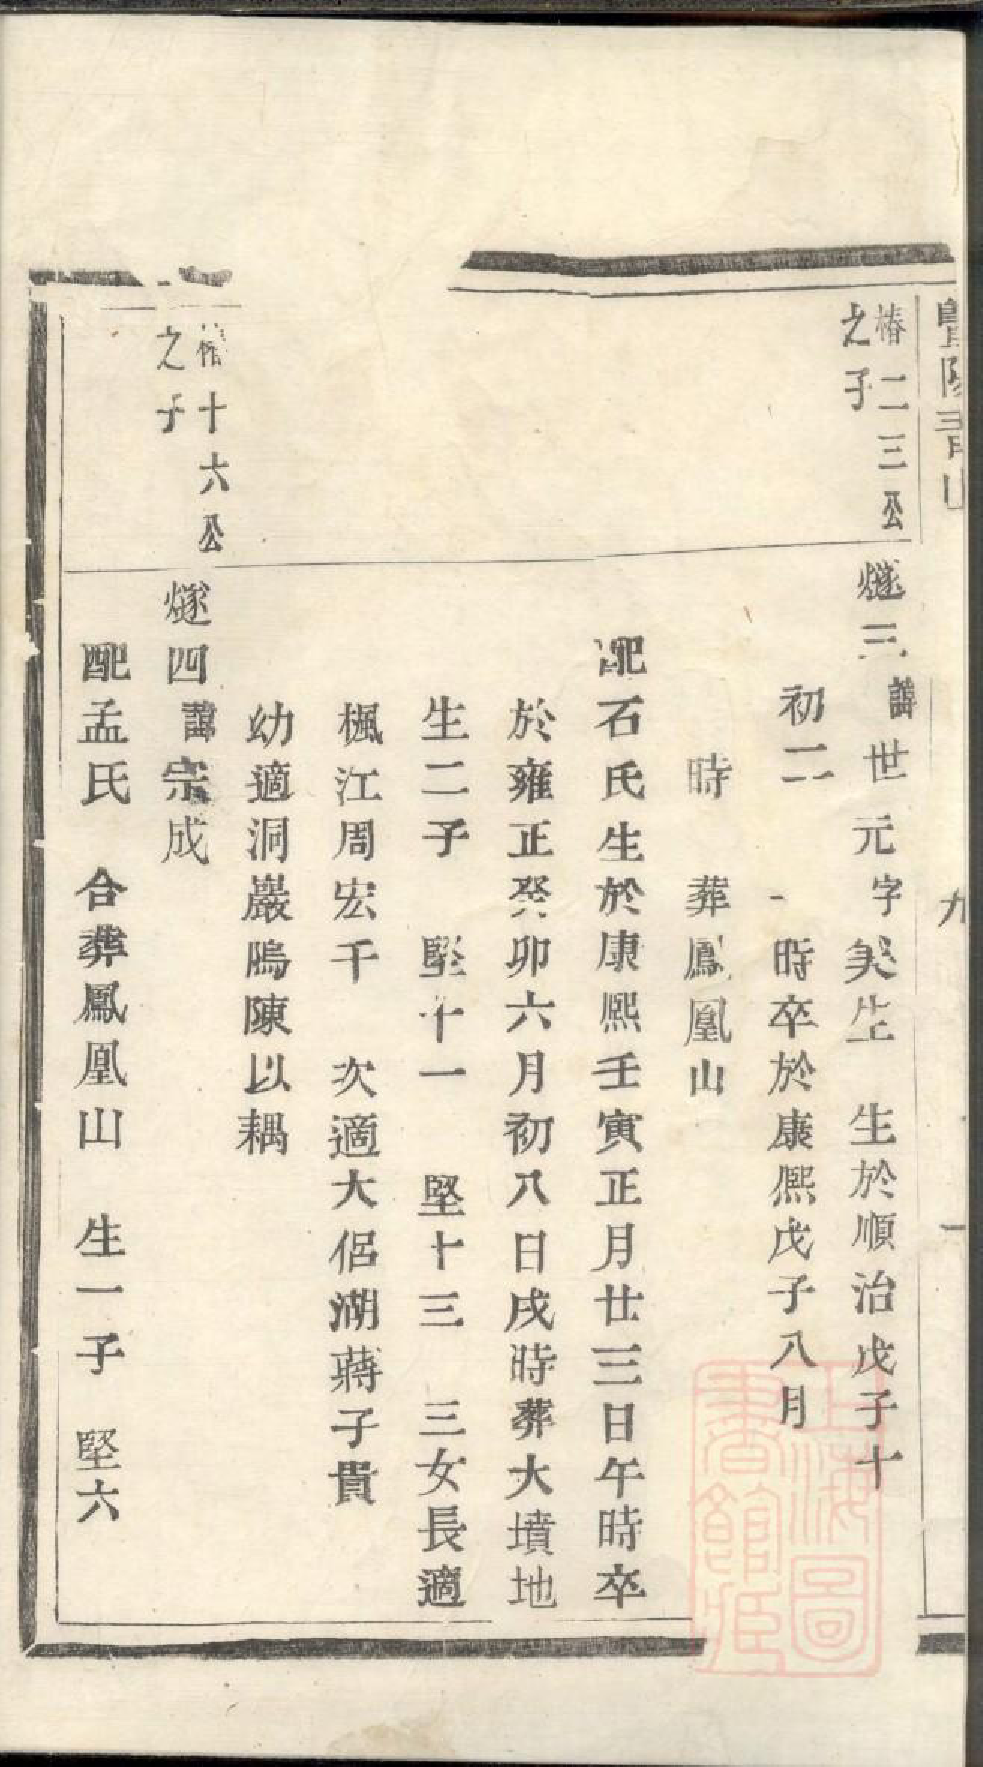 暨陽青山
九
椿二三公
之子
燧三諱世元字美生 生於順治戊子十
初二 時卒於康熙戊子八月
時 葬鳳凰山
配石氏生於康熙壬寅正月廿三日午時卒
於雍正癸卯六月初八日戌時葬大墳地
生二子 堅十一 堅十三 三女長適
楓江周宏千 次適大侶湖蔣子貴
幼適洞巖鴫陳以耦
十六公
之子
燧四諱宗成
配孟氏 合葬鳳凰山 生一子 堅六
上海圖書館藏